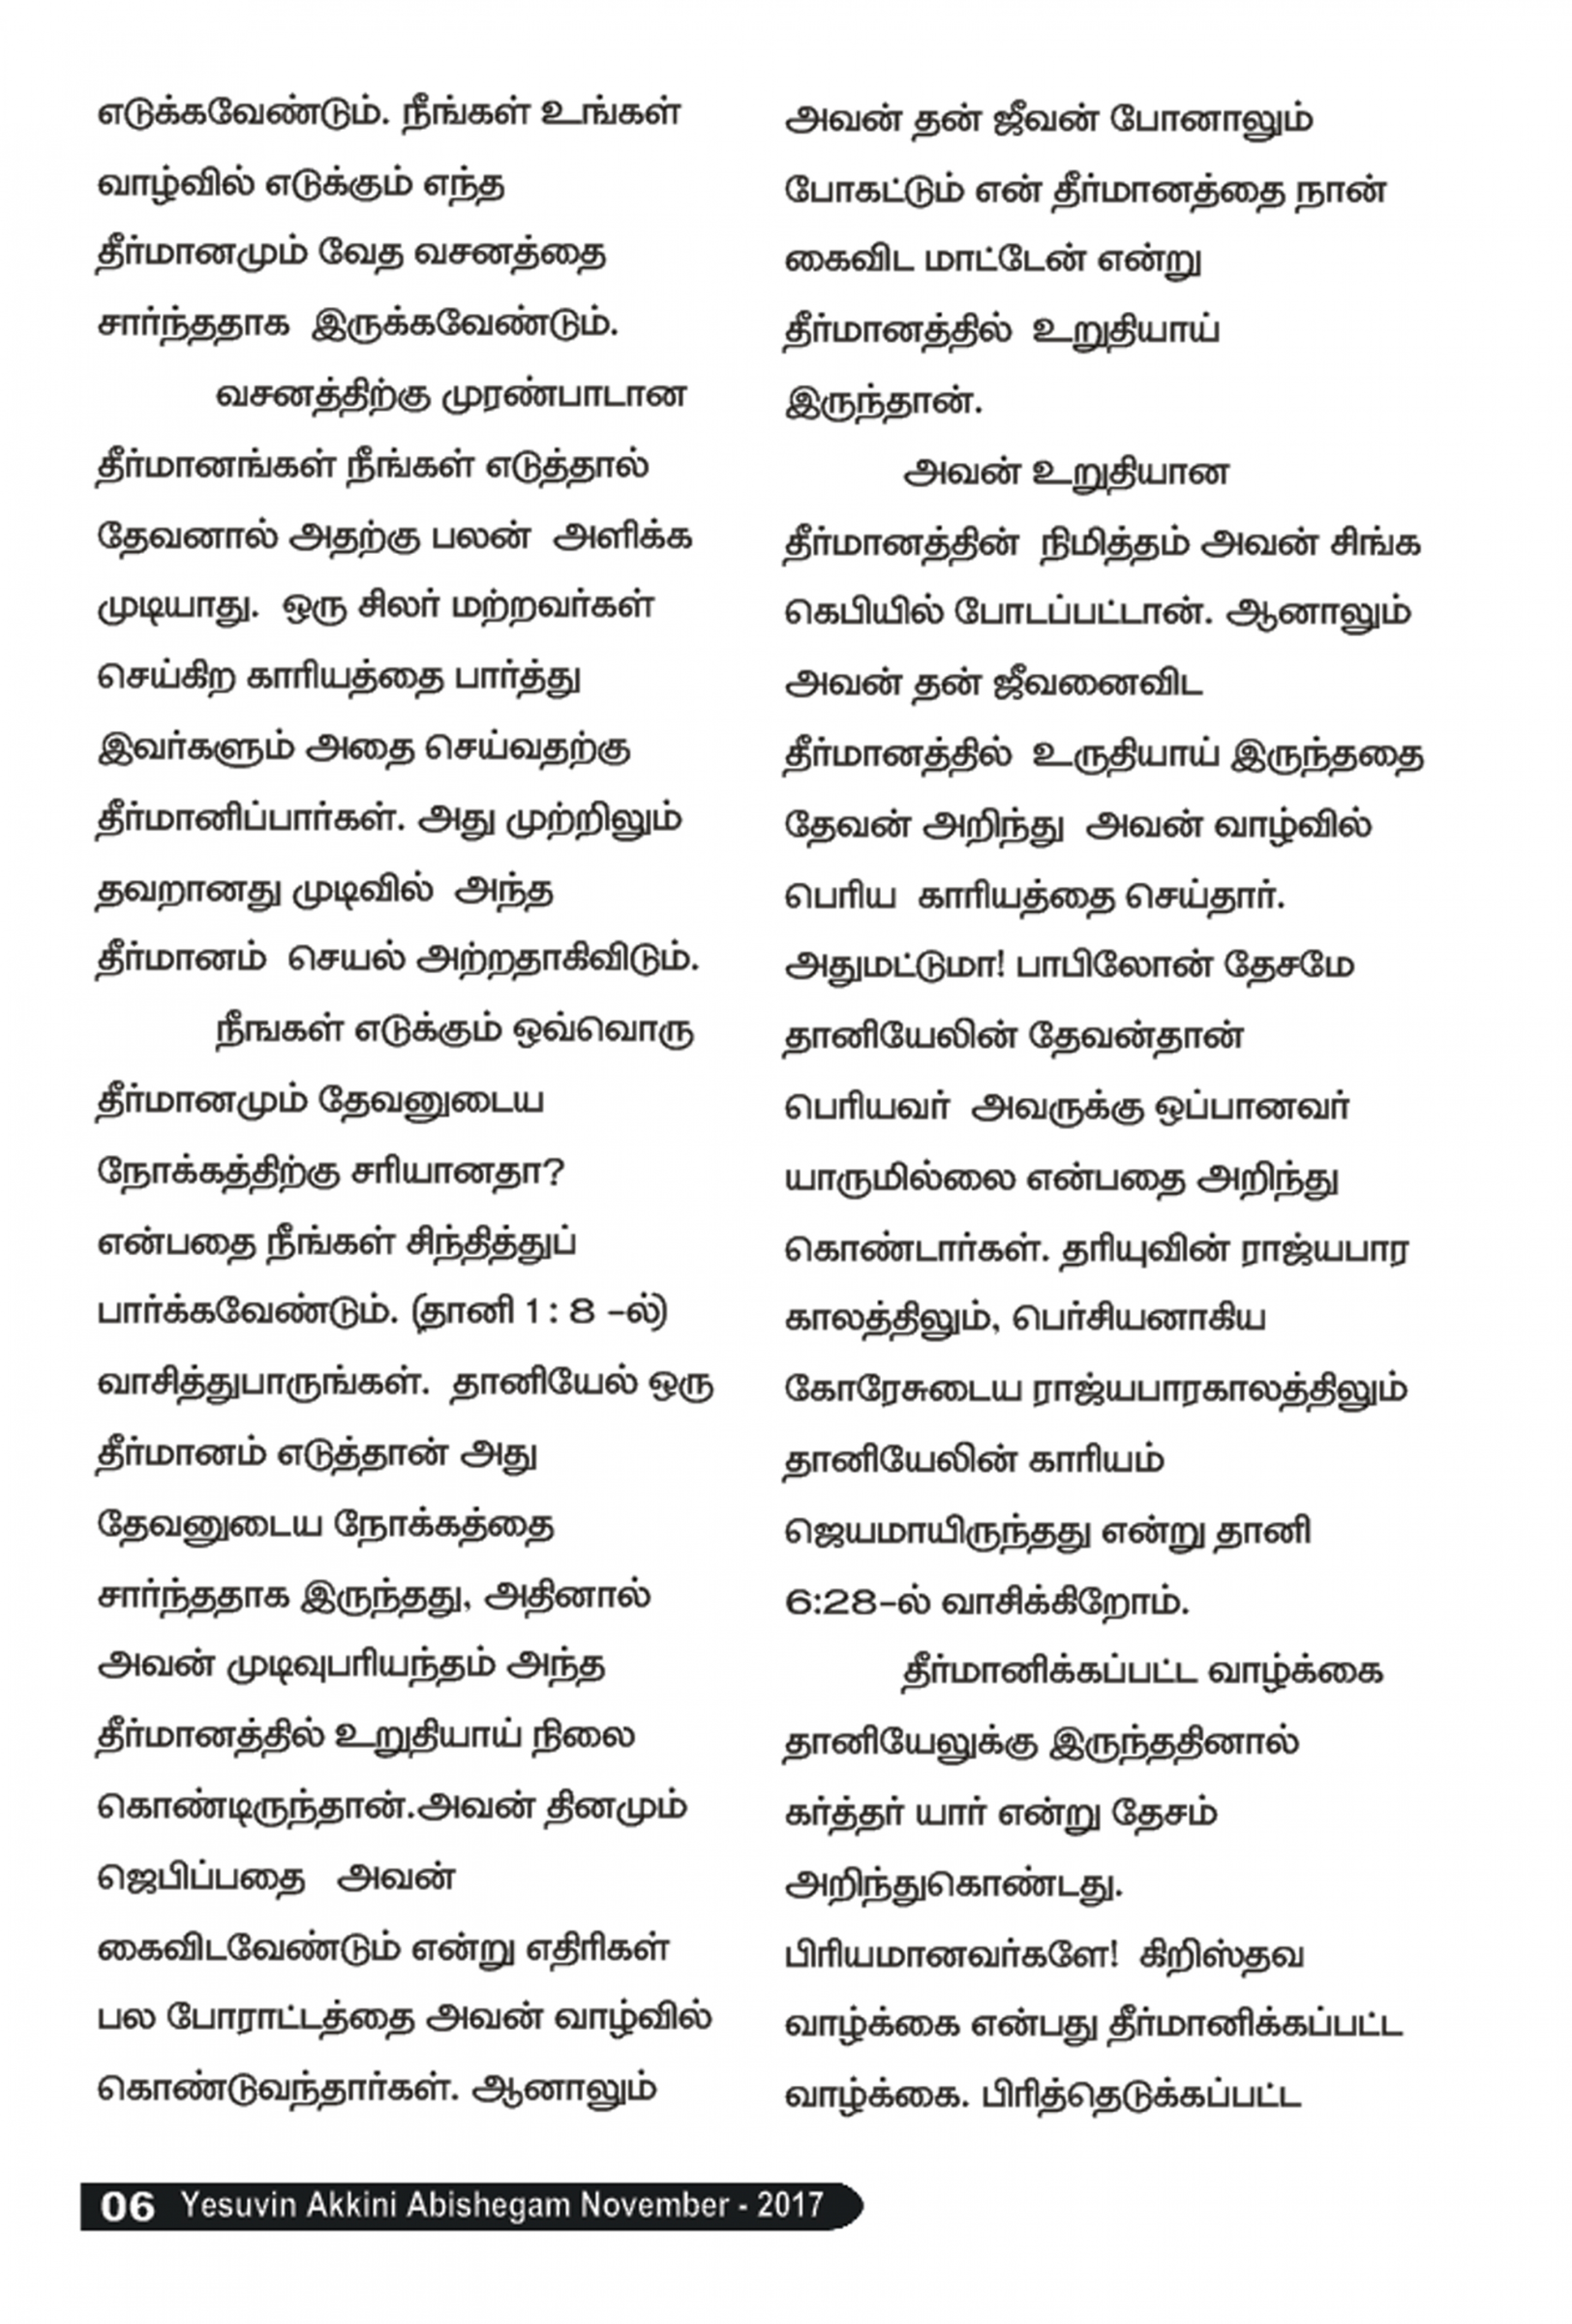 எடுக்கவேண்டும். நீங்கள் உங்கள்
வாழ்வில் எடுக்கும் எந்த
தீர்மானமும் வேத வசனத்தை
சார்ந்ததாக இருக்கவேண்டும்.
வசனத்திற்கு முரண்பாடான
தீர்மானங்கள் நீங்கள் எடுத்தால்
தேவனால் அதற்கு பலன் அளிக்க
முடியாது. ஒரு சிலர் மற்றவர்கள்
செய்கிற காரியத்தை பார்த்து
இவர்களும் அதை செய்வதற்கு
தீர்மானிப்பார்கள். அது முற்றிலும்
தவறானது முடிவில் அந்த
தீர்மானம் செயல் அற்றதாகிவிடும்.
நீஙகள் எடுக்கும் ஒவ்வொரு
தீர்மானமும் தேவனுடைய
நோக்கத்திற்கு சரியானதா?
என்பதை நீங்கள் சிந்தித்துப்
பார்க்கவேண்டும். (தானி 1 : 8 -ல்)
வாசித்துபாருங்கள். தானியேல் ஒரு
தீர்மானம் எடுத்தான் அது
தேவனுடைய நோக்கத்தை
சார்ந்ததாக இருந்தது, அதினால்
அவன் முடிவுபரியந்தம் அந்த
தீர்மானத்தில் உறுதியாய் நிலை
கொண்டிருந்தான்.அவன் தினமும்
ஜெபிப்பதை அவன்
கைவிடவேண்டும் என்று எதிரிகள்
பல போராட்டத்தை அவன் வாழ்வில்
கொண்டுவந்தார்கள். ஆனாலும்
அவன் தன் ஜீவன் போனாலும்
போகட்டும் என் தீர்மானத்தை நான்
கைவிட மாட்டேன் என்று
தீர்மானத்தில் உறுதியாய்
இருந்தான்.
அவன் உறுதியான
தீர்மானத்தின் நிமித்தம் அவன் சிங்க
கெபியில் போடப்பட்டான். ஆனாலும்
அவன் தன் ஜீவனைவிட
தீர்மானத்தில் உருதியாய் இருந்ததை
தேவன் அறிந்து அவன் வாழ்வில்
பெரிய காரியத்தை செய்தார்.
அதுமட்டுமா! பாபிலோன் தேசமே
தானியேலின் தேவன்தான்
பெரியவர் அவருக்கு ஒப்பானவர்
யாருமில்லை என்பதை அறிந்து
கொண்டார்கள். தரியுவின் ராஜ்யபார
காலத்திலும், பெர்சியனாகிய
கோரேசுடைய ராஜ்யபாரகாலத்திலும்
தானியேலின் காரியம்
ஜெயமாயிருந்தது என்று தானி
6:28-ல் வாசிக்கிறோம்.
தீர்மானிக்கப்பட்ட வாழ்க்கை
தானியேலுக்கு இருந்ததினால்
கர்த்தர் யார் என்று தேசம்
அறிந்துகொண்டது.
பிரியமானவர்களே! கிறிஸ்தவ
வாழ்க்கை என்பது தீர்மானிக்கப்பட்ட
வாழ்க்கை. பிரித்தெடுக்கப்பட்ட
06 Yesuvin Akkini Abishegam November - 2017